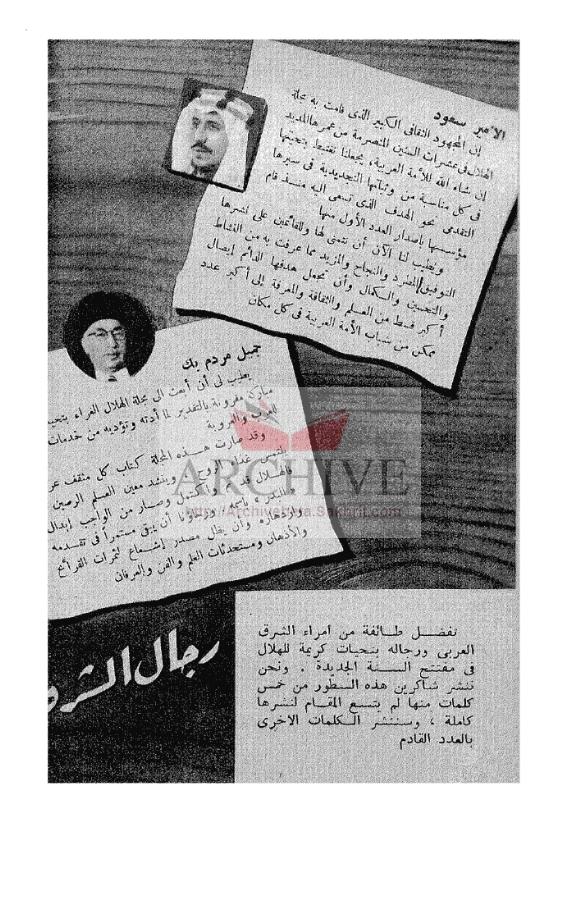 الأمير سعود
إن المجهود الثقافي الكبير الذى قامت به مجلة
الهلال فى عشرات السنين المنصرمة من عمرها المديد
إن شاء الله للأمة العربية، يجعلنا نغتبط بتحيتها
فى كل مناسبة من وثباتها التجديدية فى سيرها
التقدمى نحو الهدف الذى تسعى اليه منذ قام
مؤسسها باصدار العدد الأول منها
ويطيب لنا الآن أن نتمنى لها وللقائمين على نشرها
التوفيق المطرد والنجاح والمزيد مما عرفت به من النشاط
والتحسين والكمال وأن تجعل هدفها الدائم إيصال
أكبر قسط من العلم والثقافة والمعرفة إلى أكبر عدد
ممكن من شباب الأمة العربية فى كل مكان
جميل مردم بك
يطيب لى أن أبعث الى مجلة الهلال الغراء بتحي
مباركة مقرونة بالتقدير لما أدته وتؤديه من خدمات
للعرب والعروبة
وقد صارت هذه المجلة كتاب كل مثقف عر
يلتمس غذاء الروح وينشد معين العلم الرصين
فالهلال قد اكتمل وصار من الواجب إبدال
ورجاؤنا أن يبقى مستمراً فى تقدمه
وأن يظل مصدر إشعاع لثمرات القرائح
والأذهان ومستحدثات العلم والفن والعرفان
ARCHIVE
http://Archivebeta.Sakhrit.com
رجال الشر
تفضل طائفة من امراء الشرق
العربى ورجاله بتحيات كريمة للهلال
فى مفتتح السنة الجديدة . ونحن
ننشر شاكرين هذه السطور من خمس
كلمات منها لم يتسع المقام لنشرها
كاملة ، وسننشر الكلمات الاخرى
بالعدد القادم